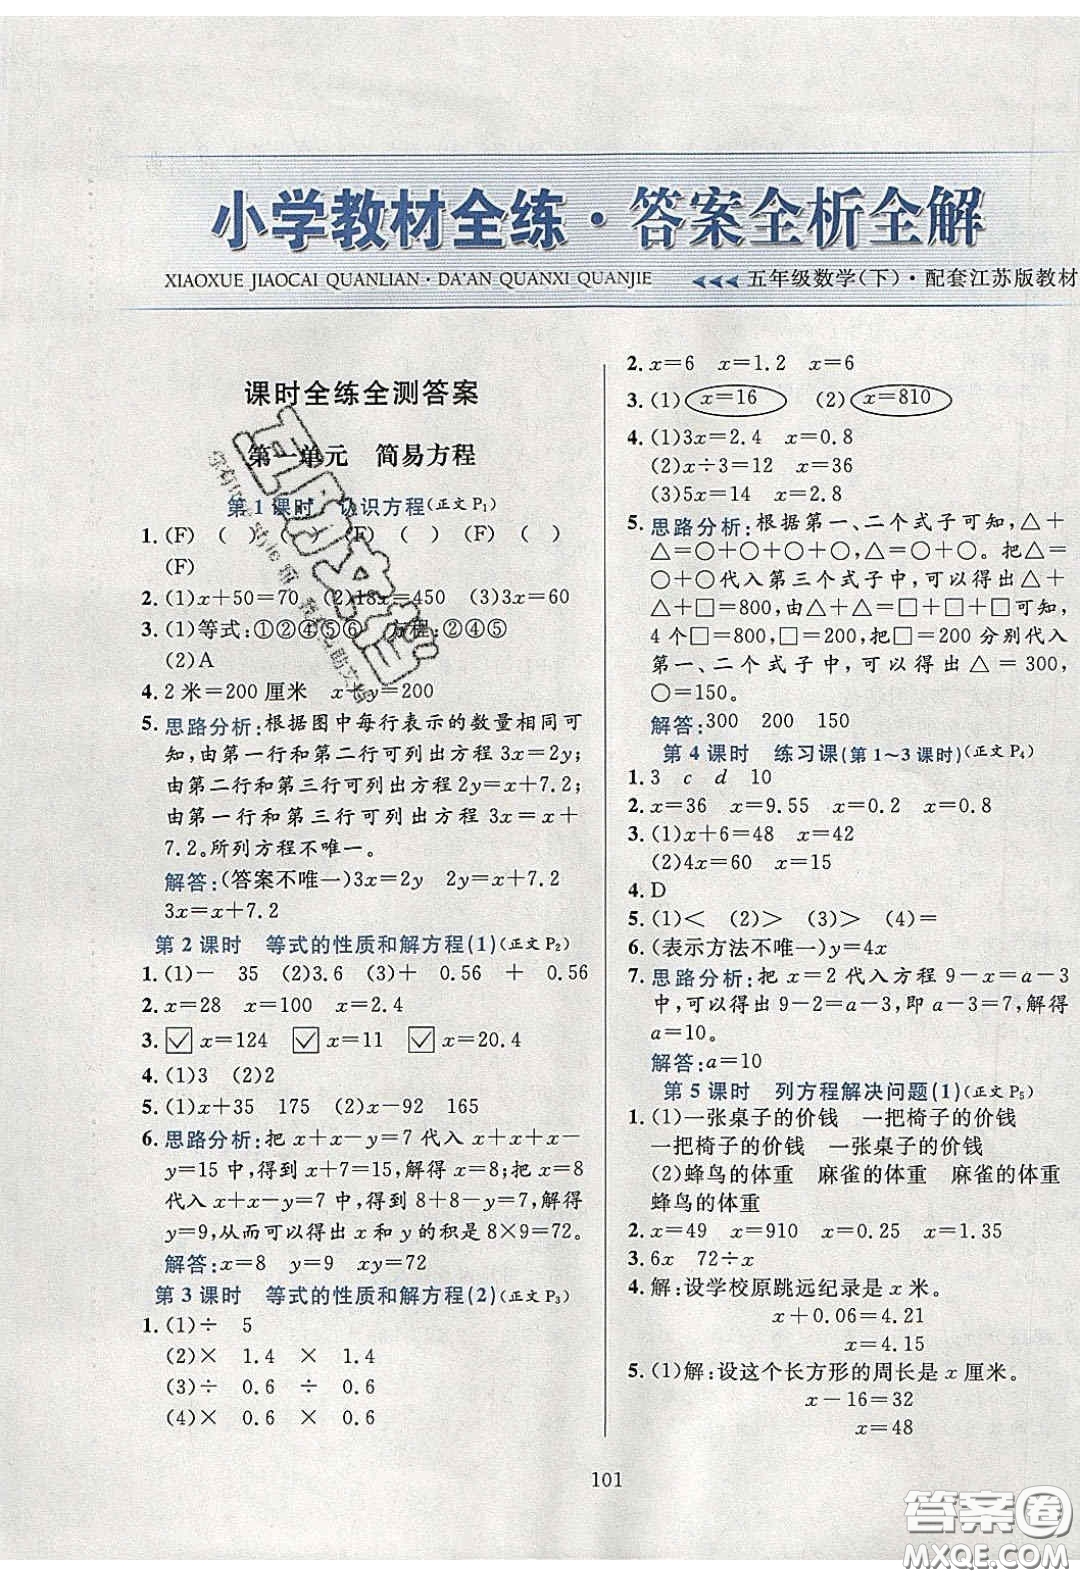 小学教材全练·答案全析全解
XIAOXUE JIAOCAI QUANLIAN·DA'AN QUANXI QUANJIE
五年级数学(下)·配套江苏版教材
课时全练全测答案
第一单元 简易方程
第1课时 认识方程(正文P₁)
1. (F) ( ) ( ) (F) ( )
(F)
2. (1)x+50=70 (2)18x=450 (3)3x=60
3. (1)等式:①②④⑤⑥ 方程:②④⑤
(2)A
4. 2米=200厘米 x+y=200
5. 思路分析:根据图中每行表示的数量相同可
知,由第一行和第二行可列出方程3x=2y;
由第二行和第三行可列出方程2y=x+7.2;
由第一行和第三行可列出方程3x=x+
7.2。所列方程不唯一。
解答:(答案不唯一)3x=2y 2y=x+7.2
3x=x+7.2
第2课时 等式的性质和解方程(1)(正文P₂)
1. (1)- 35 (2)3.6 (3)+ 0.56 + 0.56
2. x=28 x=100 x=2.4
3. ☑ x=124 ☑ x=11 ☑ x=20.4
4. (1)3 (2)2
5. (1)x+35 175 (2)x-92 165
6. 思路分析:把x+x-y=7代入x+x+x-
y=15中,得到x+7=15,解得x=8;把x=8
代入x+x-y=7中,得到8+8-y=7,解得
y=9,从而可以得出x和y的积是8×9=72。
解答:x=8 y=9 xy=72
第3课时 等式的性质和解方程(2)(正文P₃)
1. (1)÷ 5
(2)× 1.4 × 1.4
(3)÷ 0.6 ÷ 0.6
(4)× 0.6 × 0.6
2. x=6 x=1.2 x=6
3. (1)x=16 (2)x=810
4. (1)3x=2.4 x=0.8
(2)x÷3=12 x=36
(3)5x=14 x=2.8
5. 思路分析:根据第一、二个式子可知,△+
△=○+○+○+○,△=○+○。把△=
○+○代入第三个式子中,可以得出△+
△+□=800,由△+△=□+□+□可知,
4个□=800,□=200,把□=200分别代入
第一、二个式子中,可以得出△=300,
○=150。
解答:300 200 150
第4课时 练习课(第1~3课时)(正文P₄)
1. 3 c d 10
2. x=36 x=9.55 x=0.2 x=0.8
3. (1)x+6=48 x=42
(2)4x=60 x=15
4. D
5. (1)< (2)> (3)> (4)=
6. (表示方法不唯一)y=4x
7. 思路分析:把x=2代入方程9-x=a-3
中,可以得出9-2=a-3,即a-3=7,解得
a=10。
解答:a=10
第5课时 列方程解决问题(1)(正文P₅)
1. (1)一张桌子的价钱 一把椅子的价钱
一把椅子的价钱 一张桌子的价钱
(2)蜂鸟的体重 麻雀的体重 麻雀的体重
蜂鸟的体重
2. x=49 x=910 x=0.25 x=1.35
3. 6x 72÷x
4. 解:设学校原跳远纪录是x米。
x+0.06=4.21
x=4.15
5. (1)解:设这个长方形的周长是x厘米。
x-16=32
x=48
101
答案圈
MXQE.COM